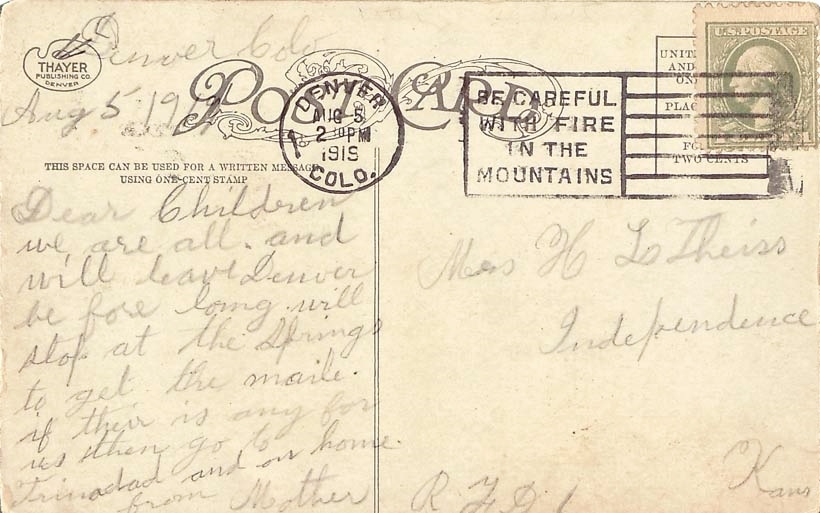 Denver Colo
Aug 5 1919
THAYER
PUBLISHING CO.
DENVER
POST CARD
DENVER
AUG 5
2 PM
1919
COLO.
BE CAREFUL
WITH FIRE
IN THE
MOUNTAINS
U.S. POSTAGE
UNIT
AND
ON
PLAC
FO
TWO CENTS
THIS SPACE CAN BE USED FOR A WRITTEN MESSAGE
USING ONE CENT STAMP
Dear Children
we are all. and
will leave Denver
be fore long. will
stop at the Springs
to get the maile.
if their is any for
us then go to
Trinadad and on home.
from Mother
Mrs H L Theiss
Independence
Kans
R F D 1